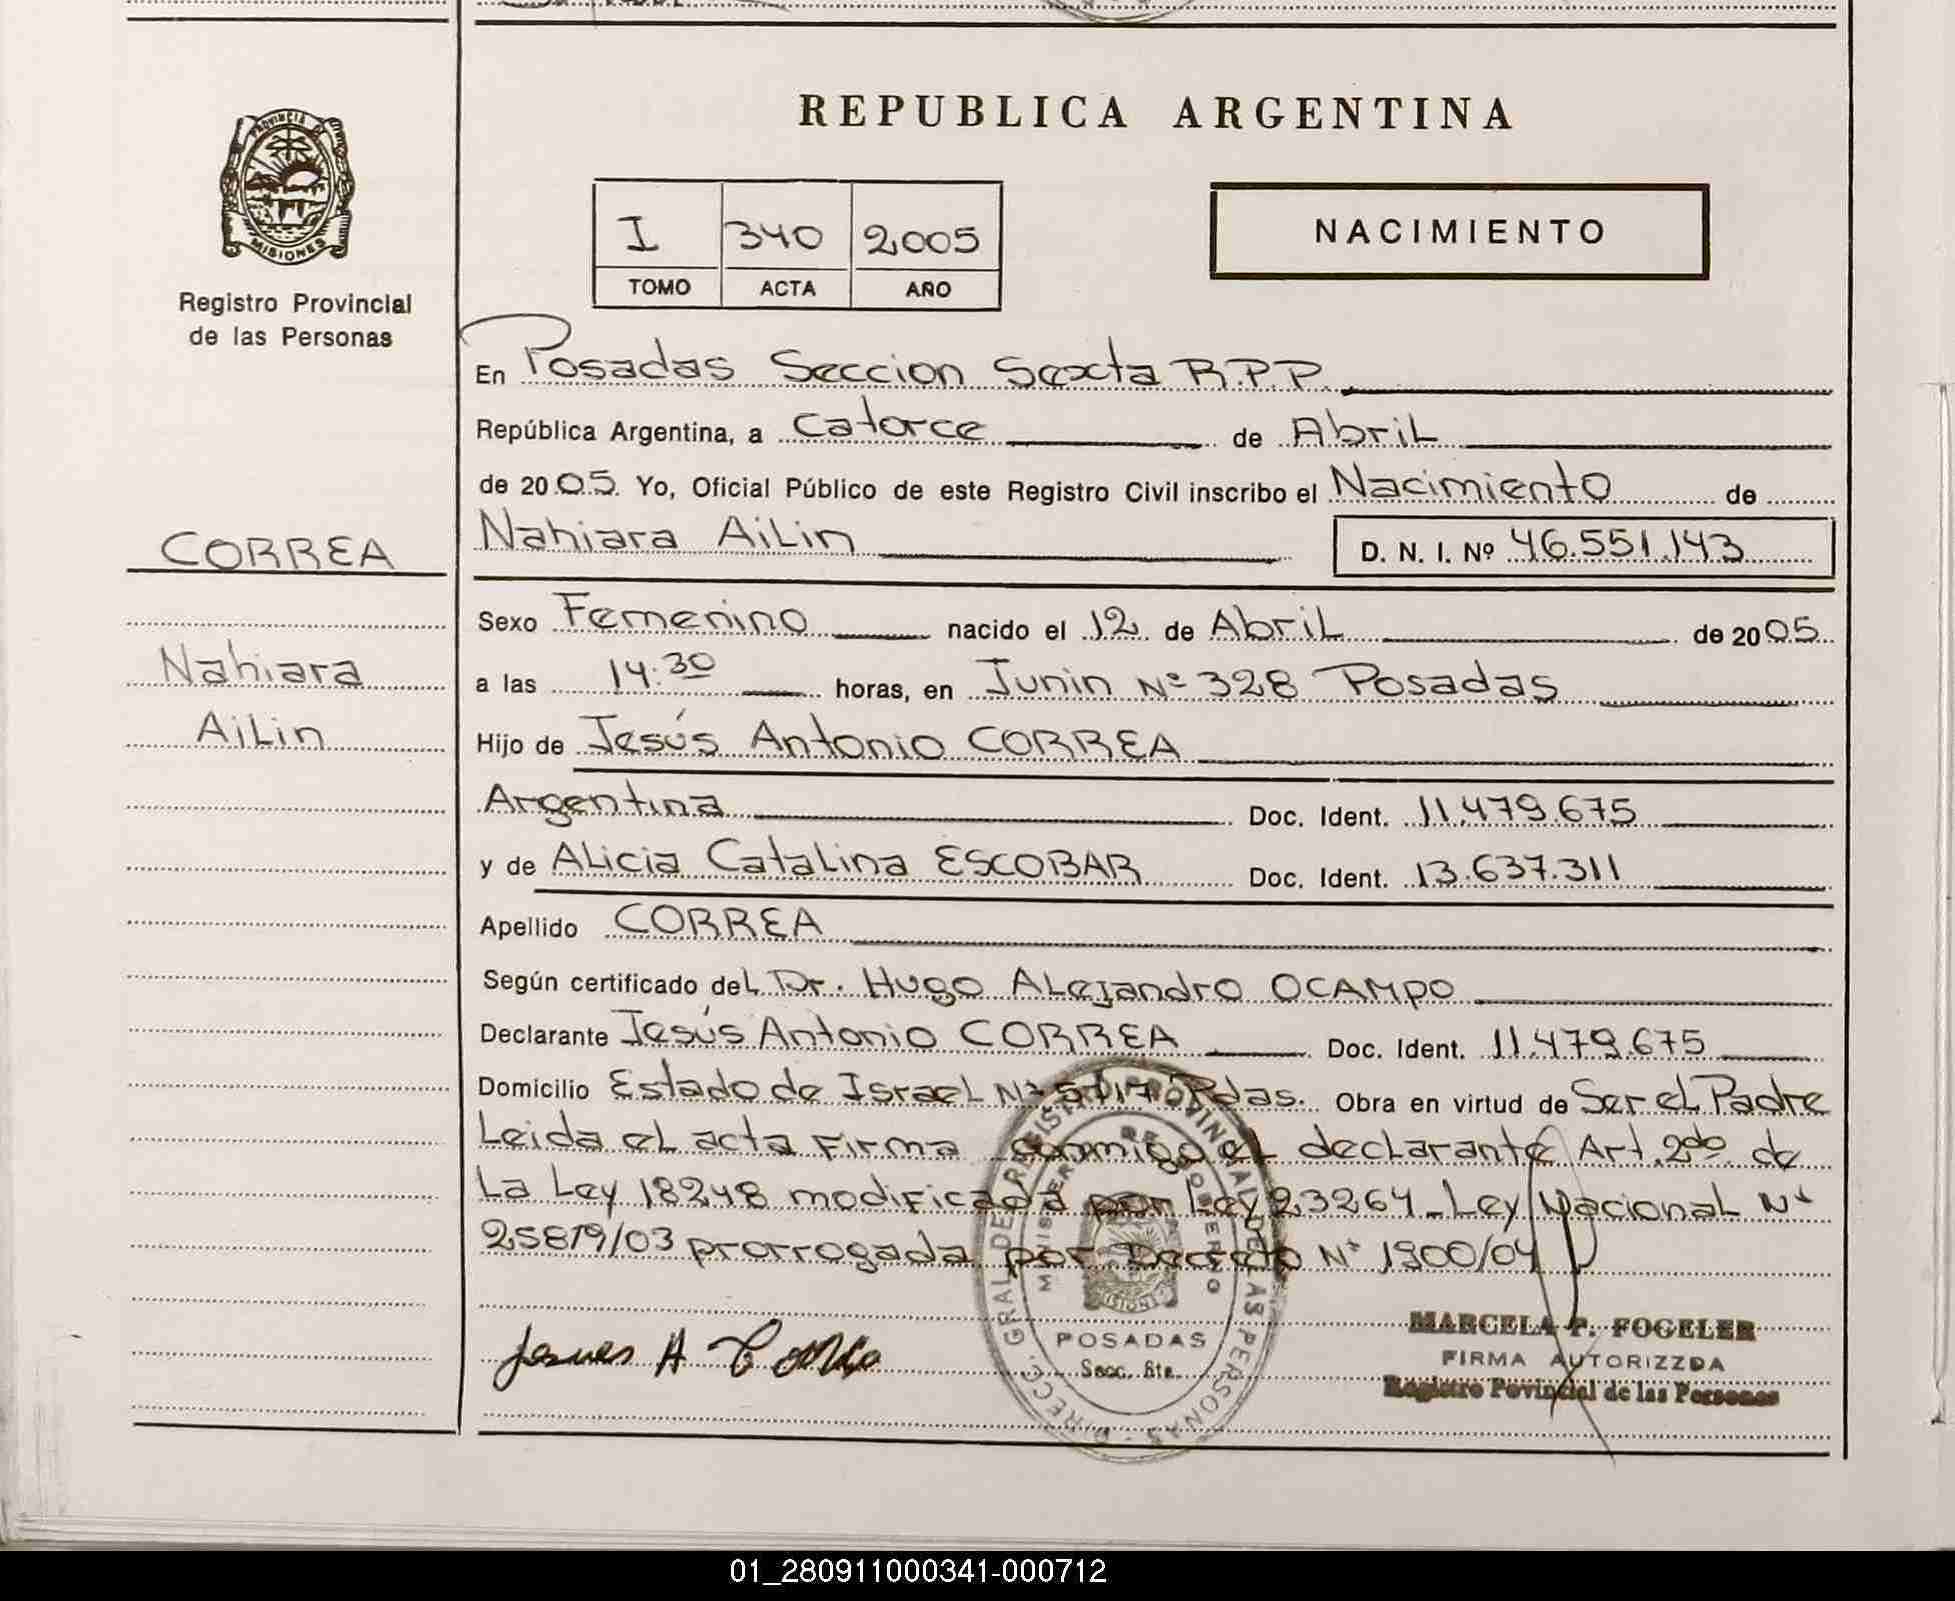 REPUBLICA ARGENTINA
PROVINCIA DE
MISIONES
Registro Provincial
de las Personas
I 340 2005
TOMO ACTA AÑO
NACIMIENTO
En Posadas Seccion Sexta R.P.P.
República Argentina, a catorce de Abril
de 2005. Yo, Oficial Público de este Registro Civil inscribo el Nacimiento de
Nahiara Ailin D. N. I. Nº 46.551.143
CORREA
Nahiara
Ailin
Sexo Femenino nacido el 12 de Abril de 2005
a las 14:30 horas, en Junin Nº 328 Posadas
Hijo de Jesús Antonio CORREA
Argentina Doc. Ident. 11.479.675
y de Alicia Catalina ESCOBAR Doc. Ident. 13.637.311
Apellido CORREA
Según certificado del Dr. Hugo Alejandro OCAMPO
Declarante Jesús Antonio CORREA Doc. Ident. 11.479.675
Domicilio Estado de Israel Nº Pdas. Obra en virtud de Ser el Padre
Leida el acta firma conmigo el declarante Art. 2do de
La Ley 18248 modificada por Ley 23264_Ley Nacional Nº
25819/03 prorrogada por Decreto Nº 1900/04
DIRECC. GRAL DEL REGISTRO PROVINCIAL DE LAS PERSONAS
MINISTERIO DE GOBIERNO
POSADAS
Secc. 6ta.
MARCELA P. FOGELER
FIRMA AUTORIZZDA
Registro Povincial de las Personas
01_280911000341-000712